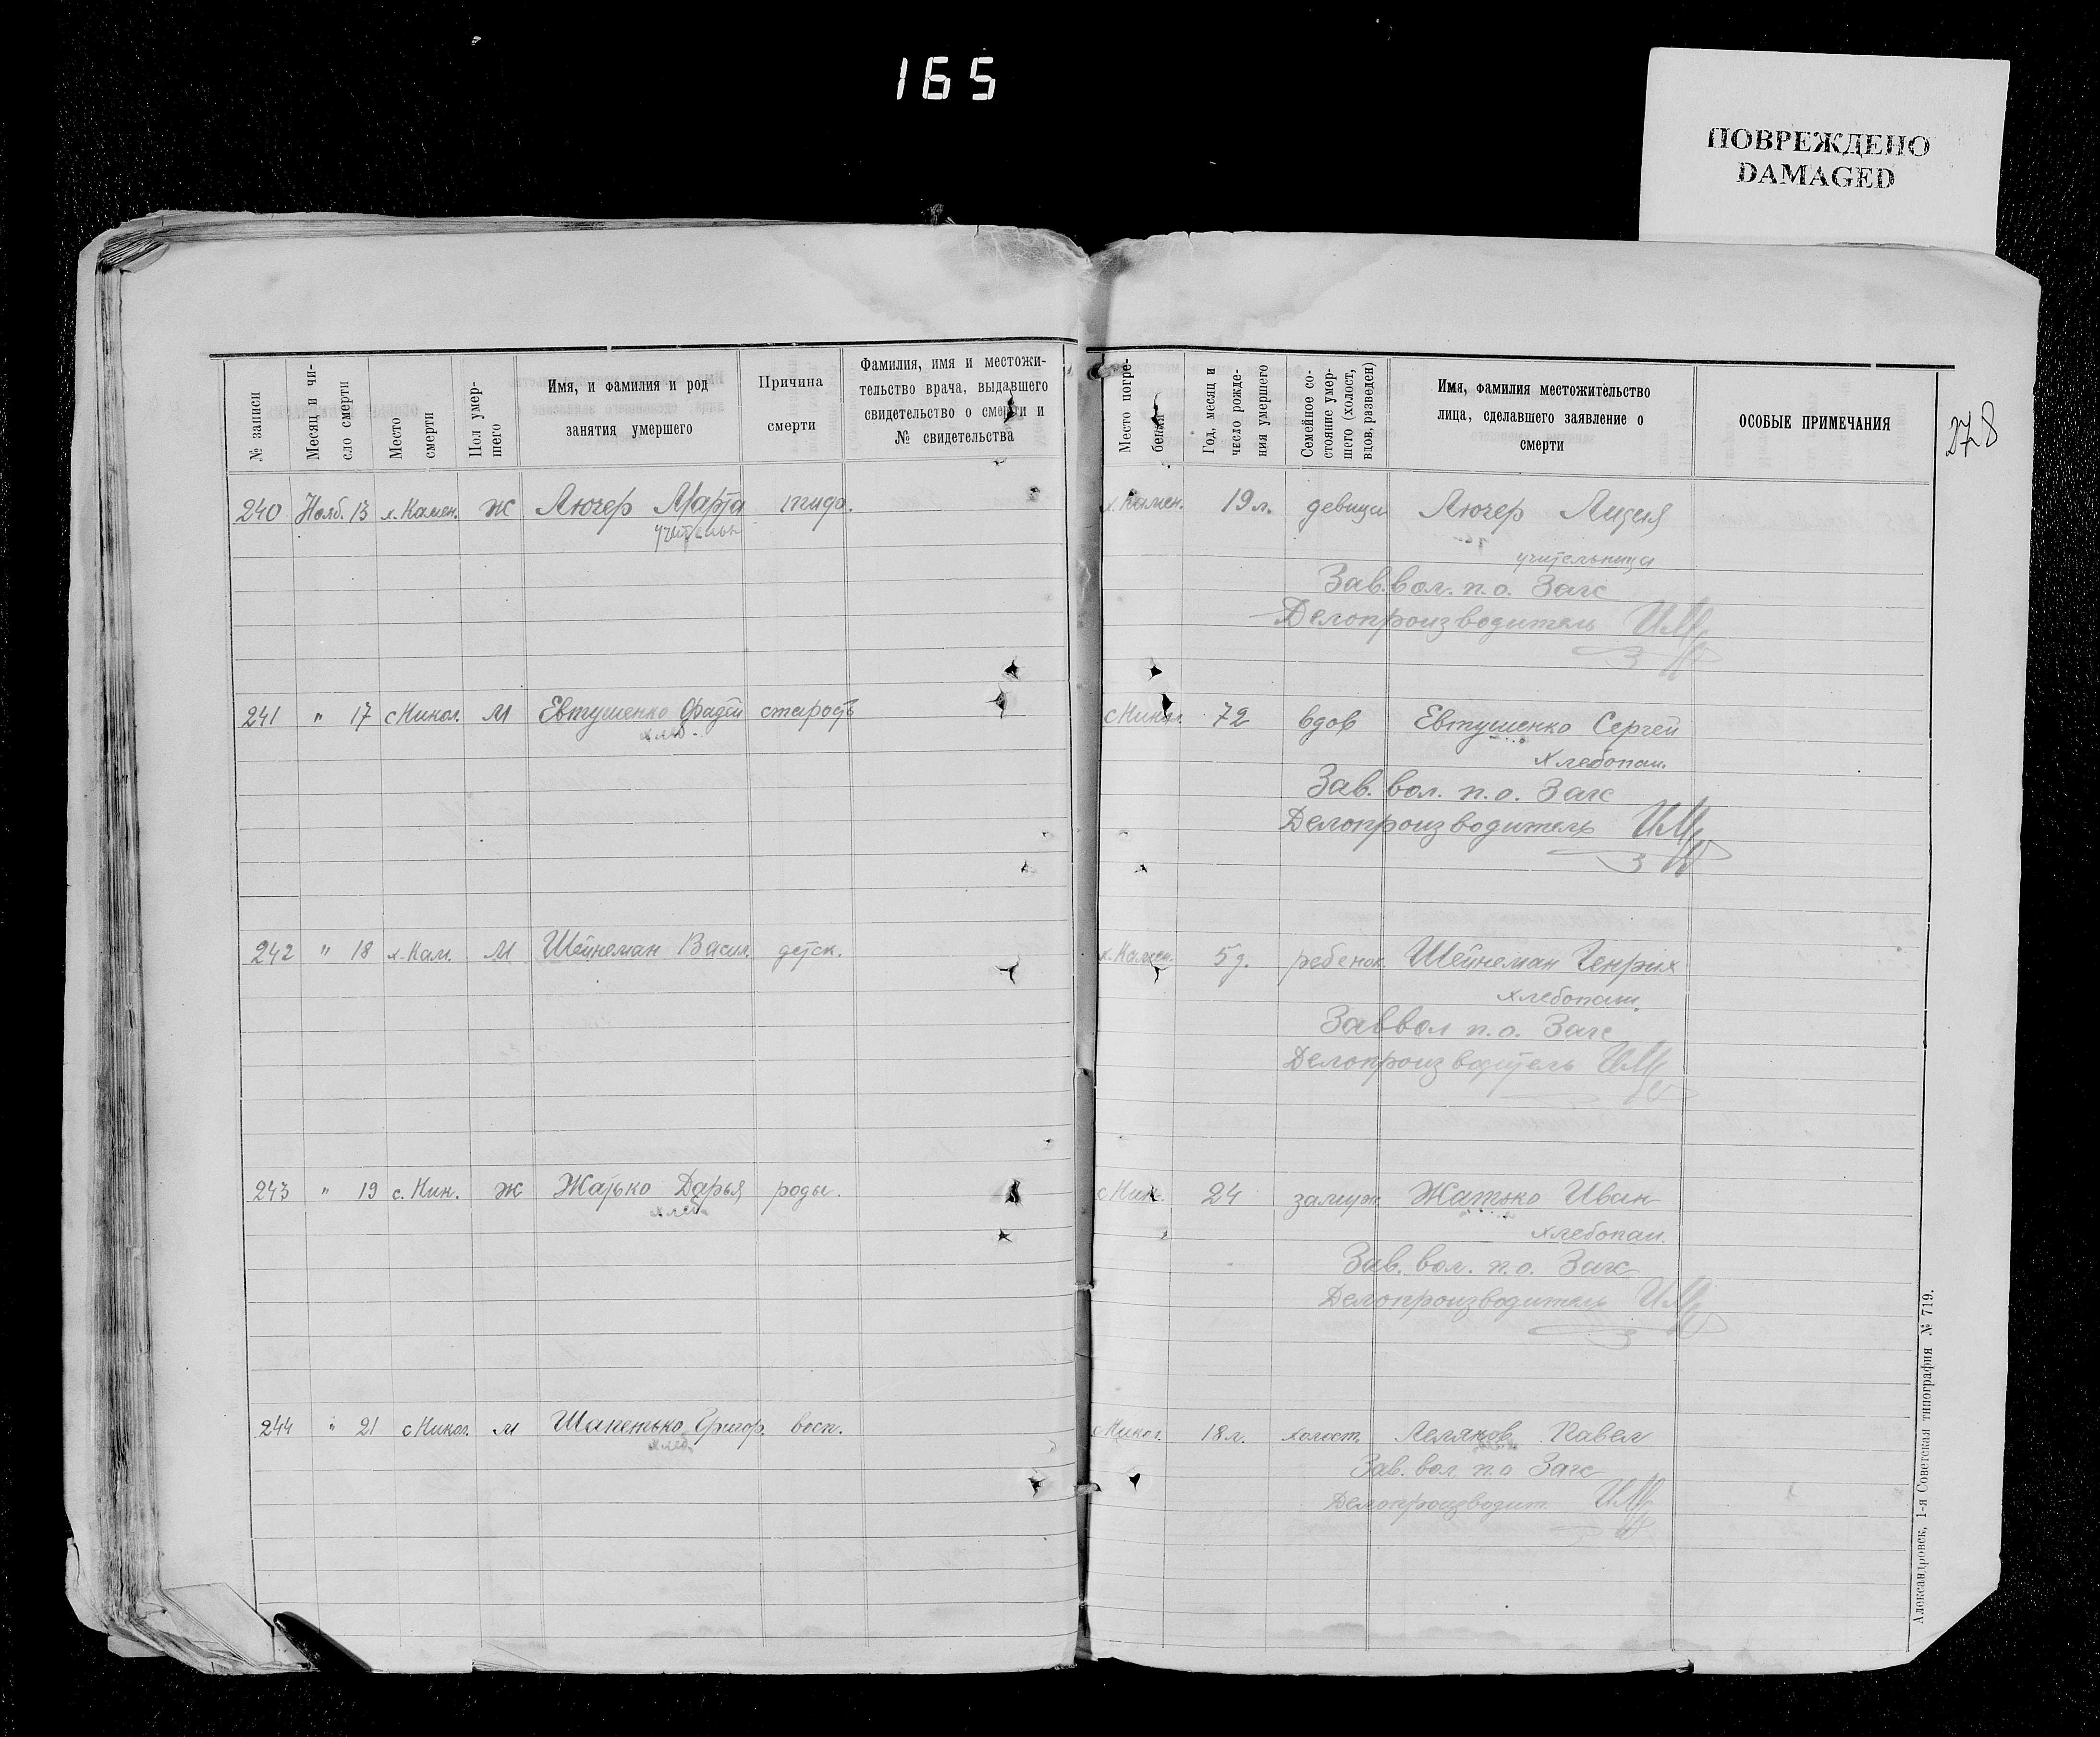 165
ПОВРЕЖДЕНО
DAMAGED
278
№ записи
Месяц и чи-
сло смерти
Место
смерти
Пол умер-
шего
Имя, и фамилия и род
занятия умершего
Причина
смерти
Фамилия, имя и местожи-
тельство врача, выдавшего
свидетельство о смерти и
№ свидетельства
Место погре-
бения
Год, месяц и
число рожде-
ния умершего
Семейное со-
стояние умер-
шего (холост,
вдов, разведен)
Имя, фамилия местожительство
лица, сделавшего заявление о
смерти
ОСОБЫЕ ПРИМЕЧАНИЯ
240 Нояб. 13 х. Камен. Ж Лючер Марта х. Камен. 19 л. девица Лючер Лидия
учительн
учительница
Зав. вол. п. о. Загс
Делопроизводитель
241 " 17 с Никол. М Евтушенко Фадей старость с Никол. 72 вдов Евтушенко Сергей
хлеб.
Хлебопаш.
Зав. вол. п. о. Загс
Делопроизводитель
242 " 18 х. Кам. М Шейнеман Васил. детск. х. Камен. 5 д. ребенок Шейнеман Генрих
хлебопаш.
Зав вол п. о. Загс
Делопроизводитель
243 " 19 с. Ник. Ж Жатько Дарья роды. с Ник. 24 замуж. Жатько Иван
хлеб
хлебопаш.
Зав. вол. п. о. Загс
Делопроизводитель
244 " 21 с Никол. М Шапетько Григор. восп. с Никол. 18 л. холост. Леляков Павел
хлеб
Зав. вол. п. о Загс
Делопроизводит.
Александровск, 1-я Советская типография № 719.